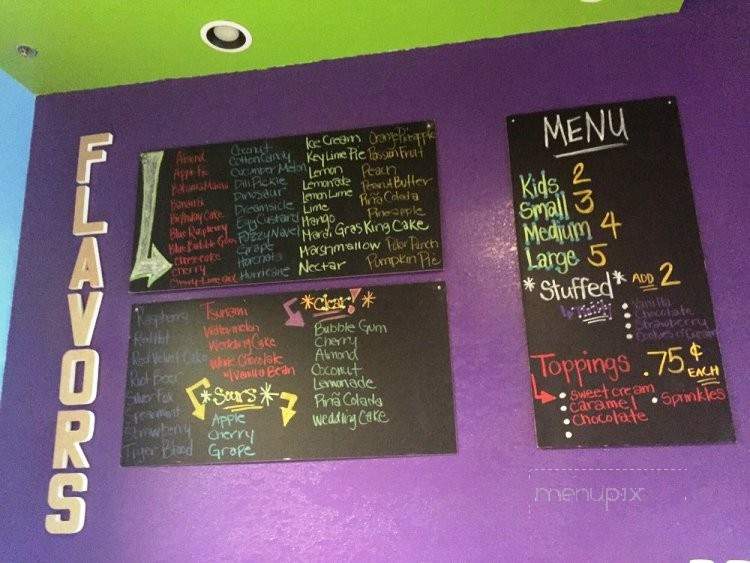 FLAVORS
Almond
Apple Pie
Bahama Mama
Banana
Birthday Cake
Blue Raspberry
Blue Bubble Gum
Cheesecake
Cherry
Cherry Limeade
Coconut
Cotton Candy
Cucumber Melon
Dill Pickle
Dinosaur
Dreamsicle
Egg Custard
Fuzzy Navel
Grape
Hurricane
Ice Cream
Key Lime Pie
Lemon
Lemonade
Lemon Lime
Lime
Mango
Mardi Gras King Cake
Marshmallow
Nectar
Passion Fruit
Peach
Peanut Butter
Piña Colada
Pineapple
Polar Punch
Pumpkin Pie
Raspberry
Red Hot
Red Velvet Cake
Root Beer
Silver Fox
Spearmint
Strawberry
Tiger Blood
Tsunami
Watermelon
Wedding Cake
White Chocolate
w/ Vanilla Bean
*Sours*
Apple
Cherry
Grape
*Clear!*
Bubble Gum
Cherry
Almond
Coconut
Lemonade
Piña Colada
Wedding Cake
MENU
Kids 2
Small 3
Medium 4
Large 5
*Stuffed* ADD 2
Vanilla
Chocolate
Strawberry
Cookies & Cream
Toppings .75¢ EACH
sweet cream
caramel
chocolate
Sprinkles
menupix